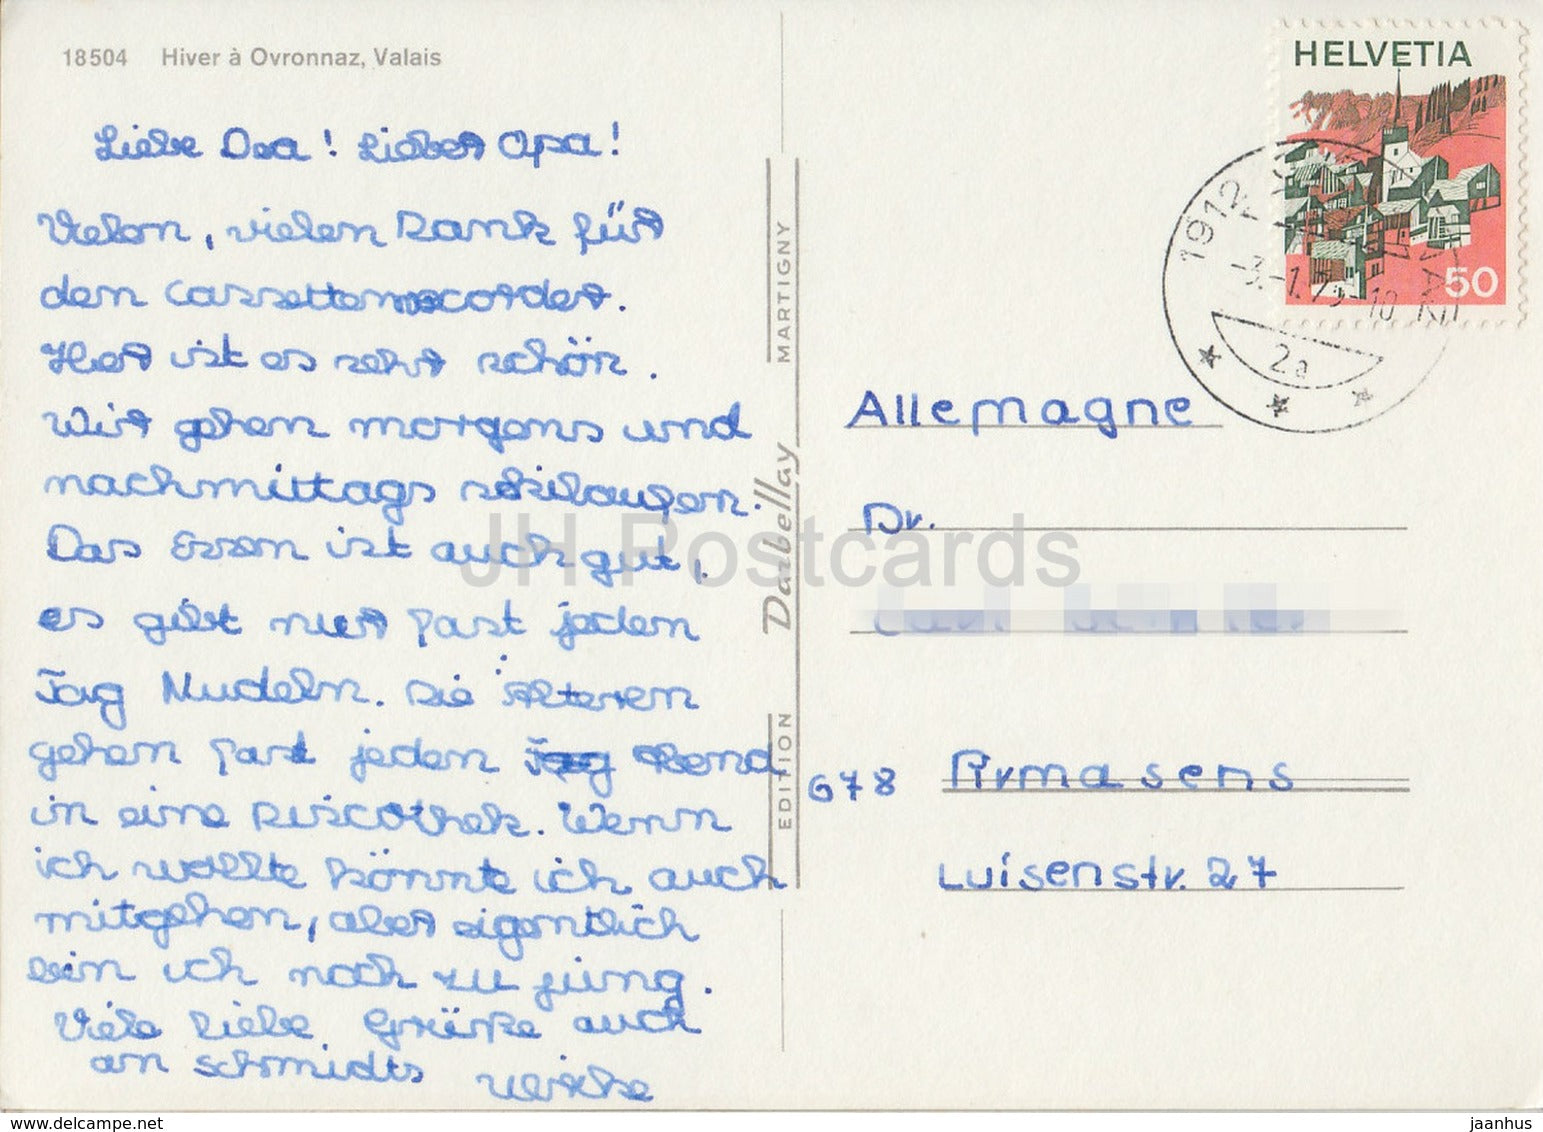 18504 Hiver à Ovronnaz, Valais
Liebe Oma! Lieber Opa!
Vielen, vielen Dank für
den Cassettenrecorder.
Hier ist es sehr schön.
Wir gehen morgens und
nachmittags skilaufen.
Das Essen ist auch gut,
es gibt nur fast jeden
Tag Nudeln. Die Älteren
gehen fast jeden Tag Abend
in eine Discothek. Wenn
ich wollte könnte ich auch
mitgehen, aber eigentlich
bin ich noch zu jung.
Viele liebe Grüße auch
an Schmidts Ulrike
EDITION Darbellay MARTIGNY
HELVETIA
50
1912
-3.-1.75-10
2a
Allemagne
Dr.
678 Pirmasens
Luisenstr. 27
JH Postcards
www.delcampe.net
jaanhus